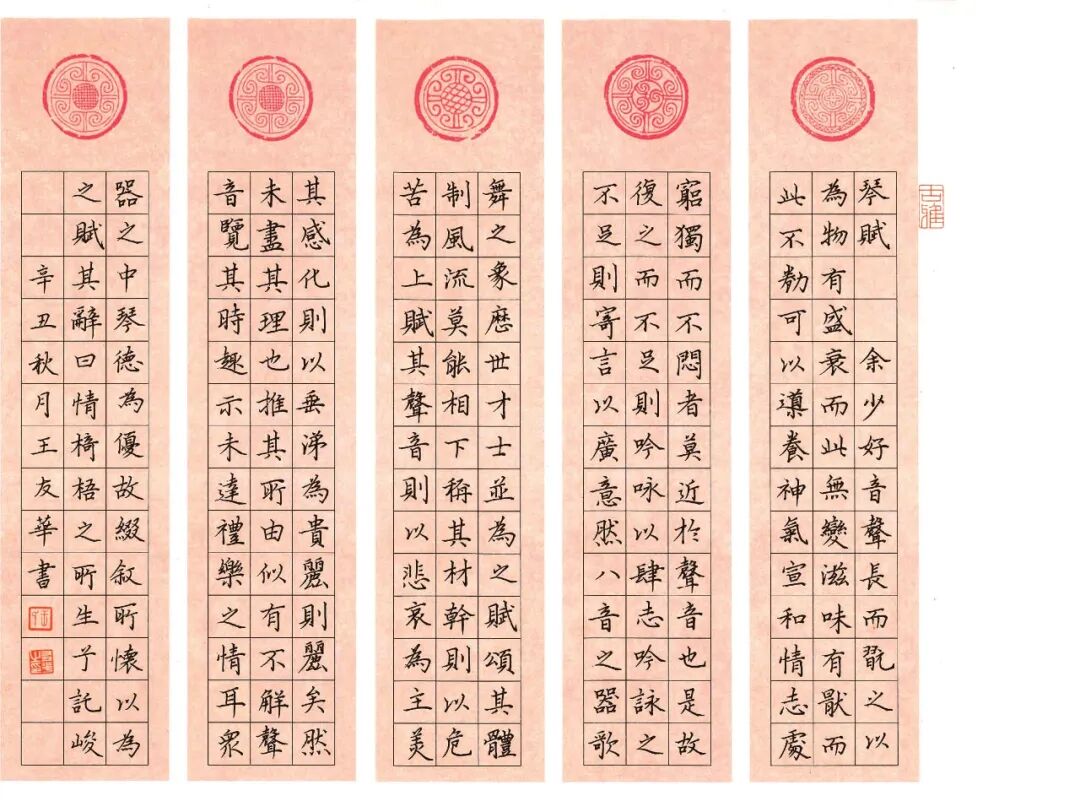 琴賦 余少好音聲長而翫之以
為物有盛衰而此無變滋味有猒而
此不勌可以導養神氣宣和情志處
窮獨而不悶者莫近於聲音也是故
復之而不足則吟咏以肆志吟詠之
不足則寄言以廣意然八音之器歌
舞之象歷世才士並為之賦頌其體
制風流莫能相下稱其材幹則以危
苦為上賦其聲音則以悲哀為主美
其感化則以垂涕為貴麗則麗矣然
未盡其理也推其所由似有不解聲
音覽其時趣示未達禮樂之情耳眾
器之中琴德為優故綴叙所懷以為
之賦其辭曰情椅梧之所生兮託峻
辛丑秋月王友華書
古雅